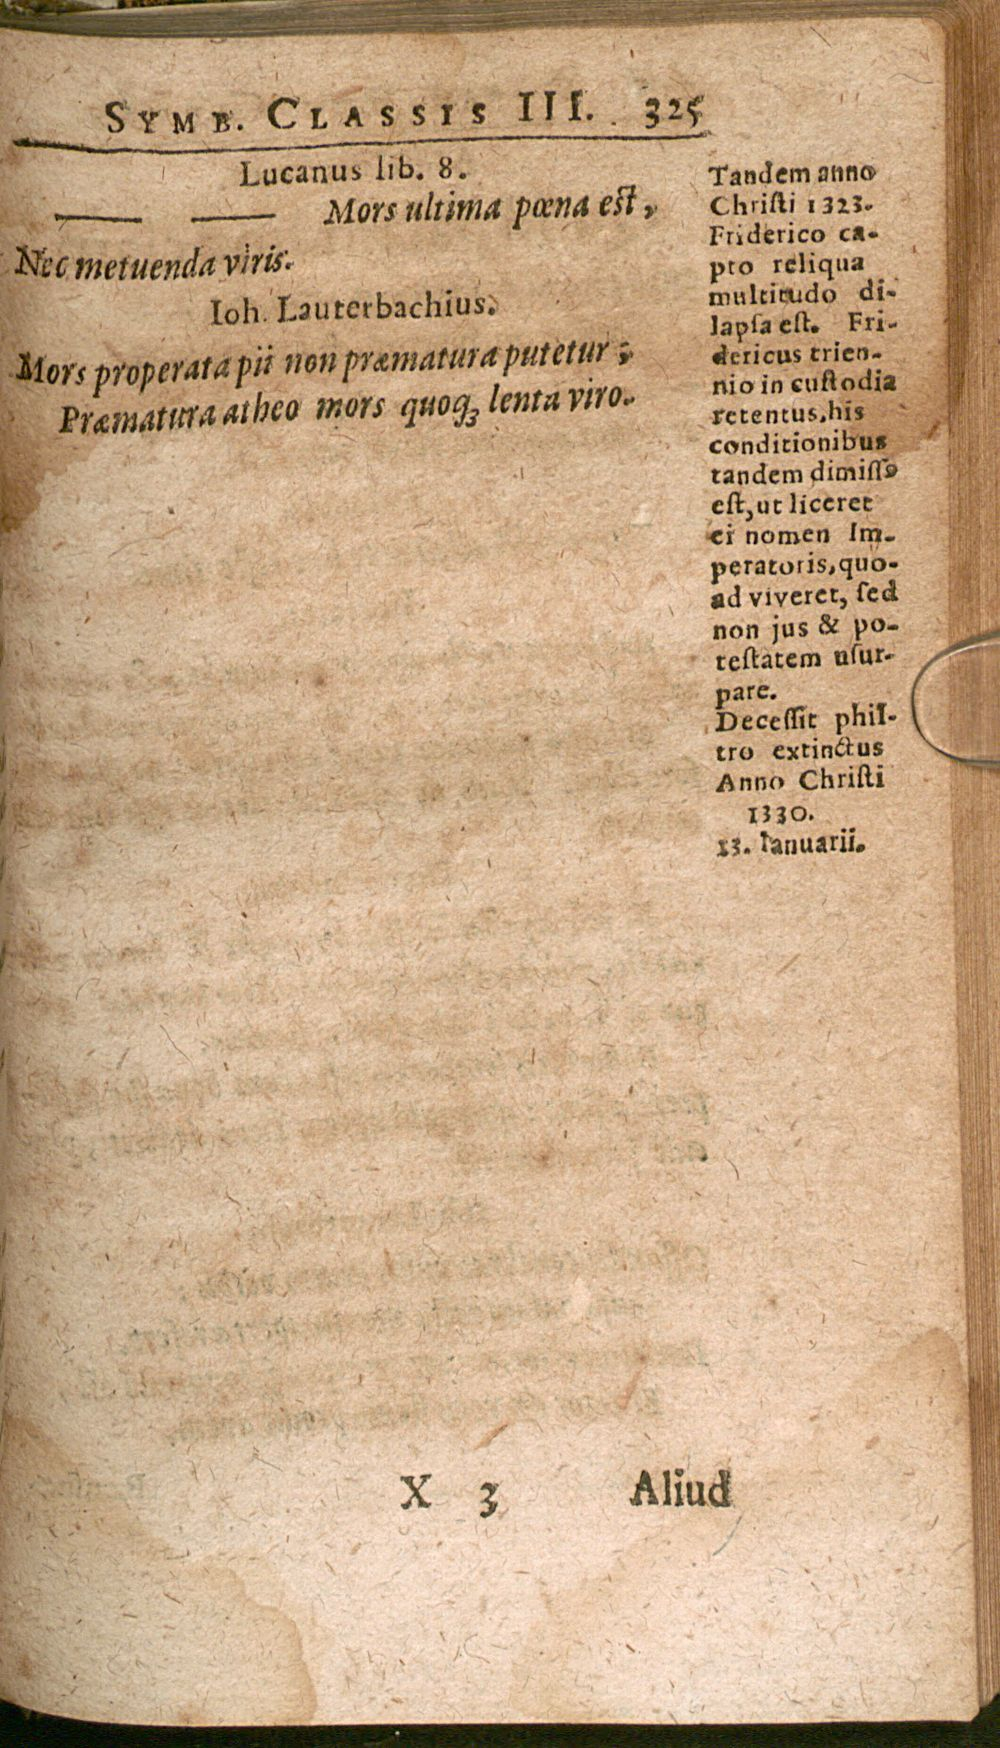 SYMB. CLASSIS III. 325
Lucanus lib. 8.
Mors ultima pœna est,
Nec metuenda viris.
Ioh. Lauterbachius.
Mors properata pii non præmatura putetur;
Præmatura atheo mors quoqꝫ lenta viro.
Tandem anno
Chriſti 1323.
Friderico ca-
pto reliqua
multitudo di-
lapſa eſt. Fri-
dericus trien-
nio in cuſtodia
retentus, his
conditionibus
tandem dimiſſꝰ
eſt, ut liceret
ei nomen Im-
peratoris, quo-
ad viveret, ſed
non jus & po-
teſtatem uſur-
pare.
Deceſſit phil-
tro extinctus
Anno Chriſti
1330.
13. Ianuarii.
X 3 Aliud